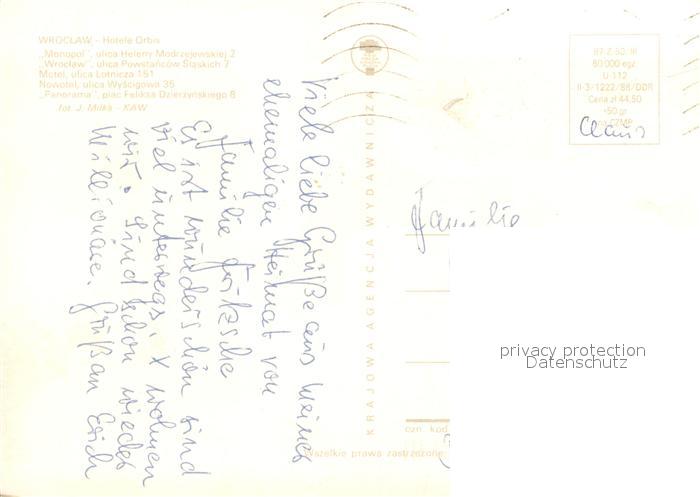 WROCŁAW – Hotele Orbis
„Monopol", ulica Heleny Modrzejewskiej 2
„Wrocław", ulica Powstańców Śląskich 7
Motel, ulica Lotnicza 151
Novotel, ulica Wyścigowa 35
„Panorama", plac Feliksa Dzierżyńskiego 8
fot. J. Milka – KAW
Viele liebe Grüße aus meiner
ehemaligen Heimat von
Familie
Es ist wunderschön sind
viel unterwegs. x wohnen
wir. sind schon wieder
Millionäre. Gruß an Erich
KRAJOWA AGENCJA WYDAWNICZA
II-3/1222/88/DDR
Cena zł 44,50
+50 gr
na CZMP
Claus
Familie
privacy protection
Datenschutz
czn. kod
Wszelkie prawa zastrzeżone